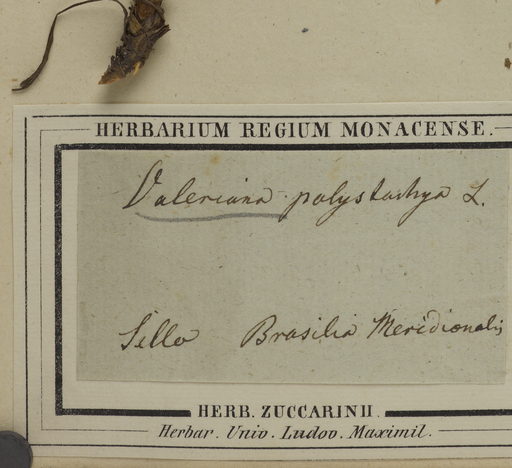 HERBARIUM REGIUM MONACENSE.
Valeriana polystachya L.
Sello Brasilia Meridionalis
HERB. ZUCCARINII.
Herbar. Univ. Ludov. Maximil.